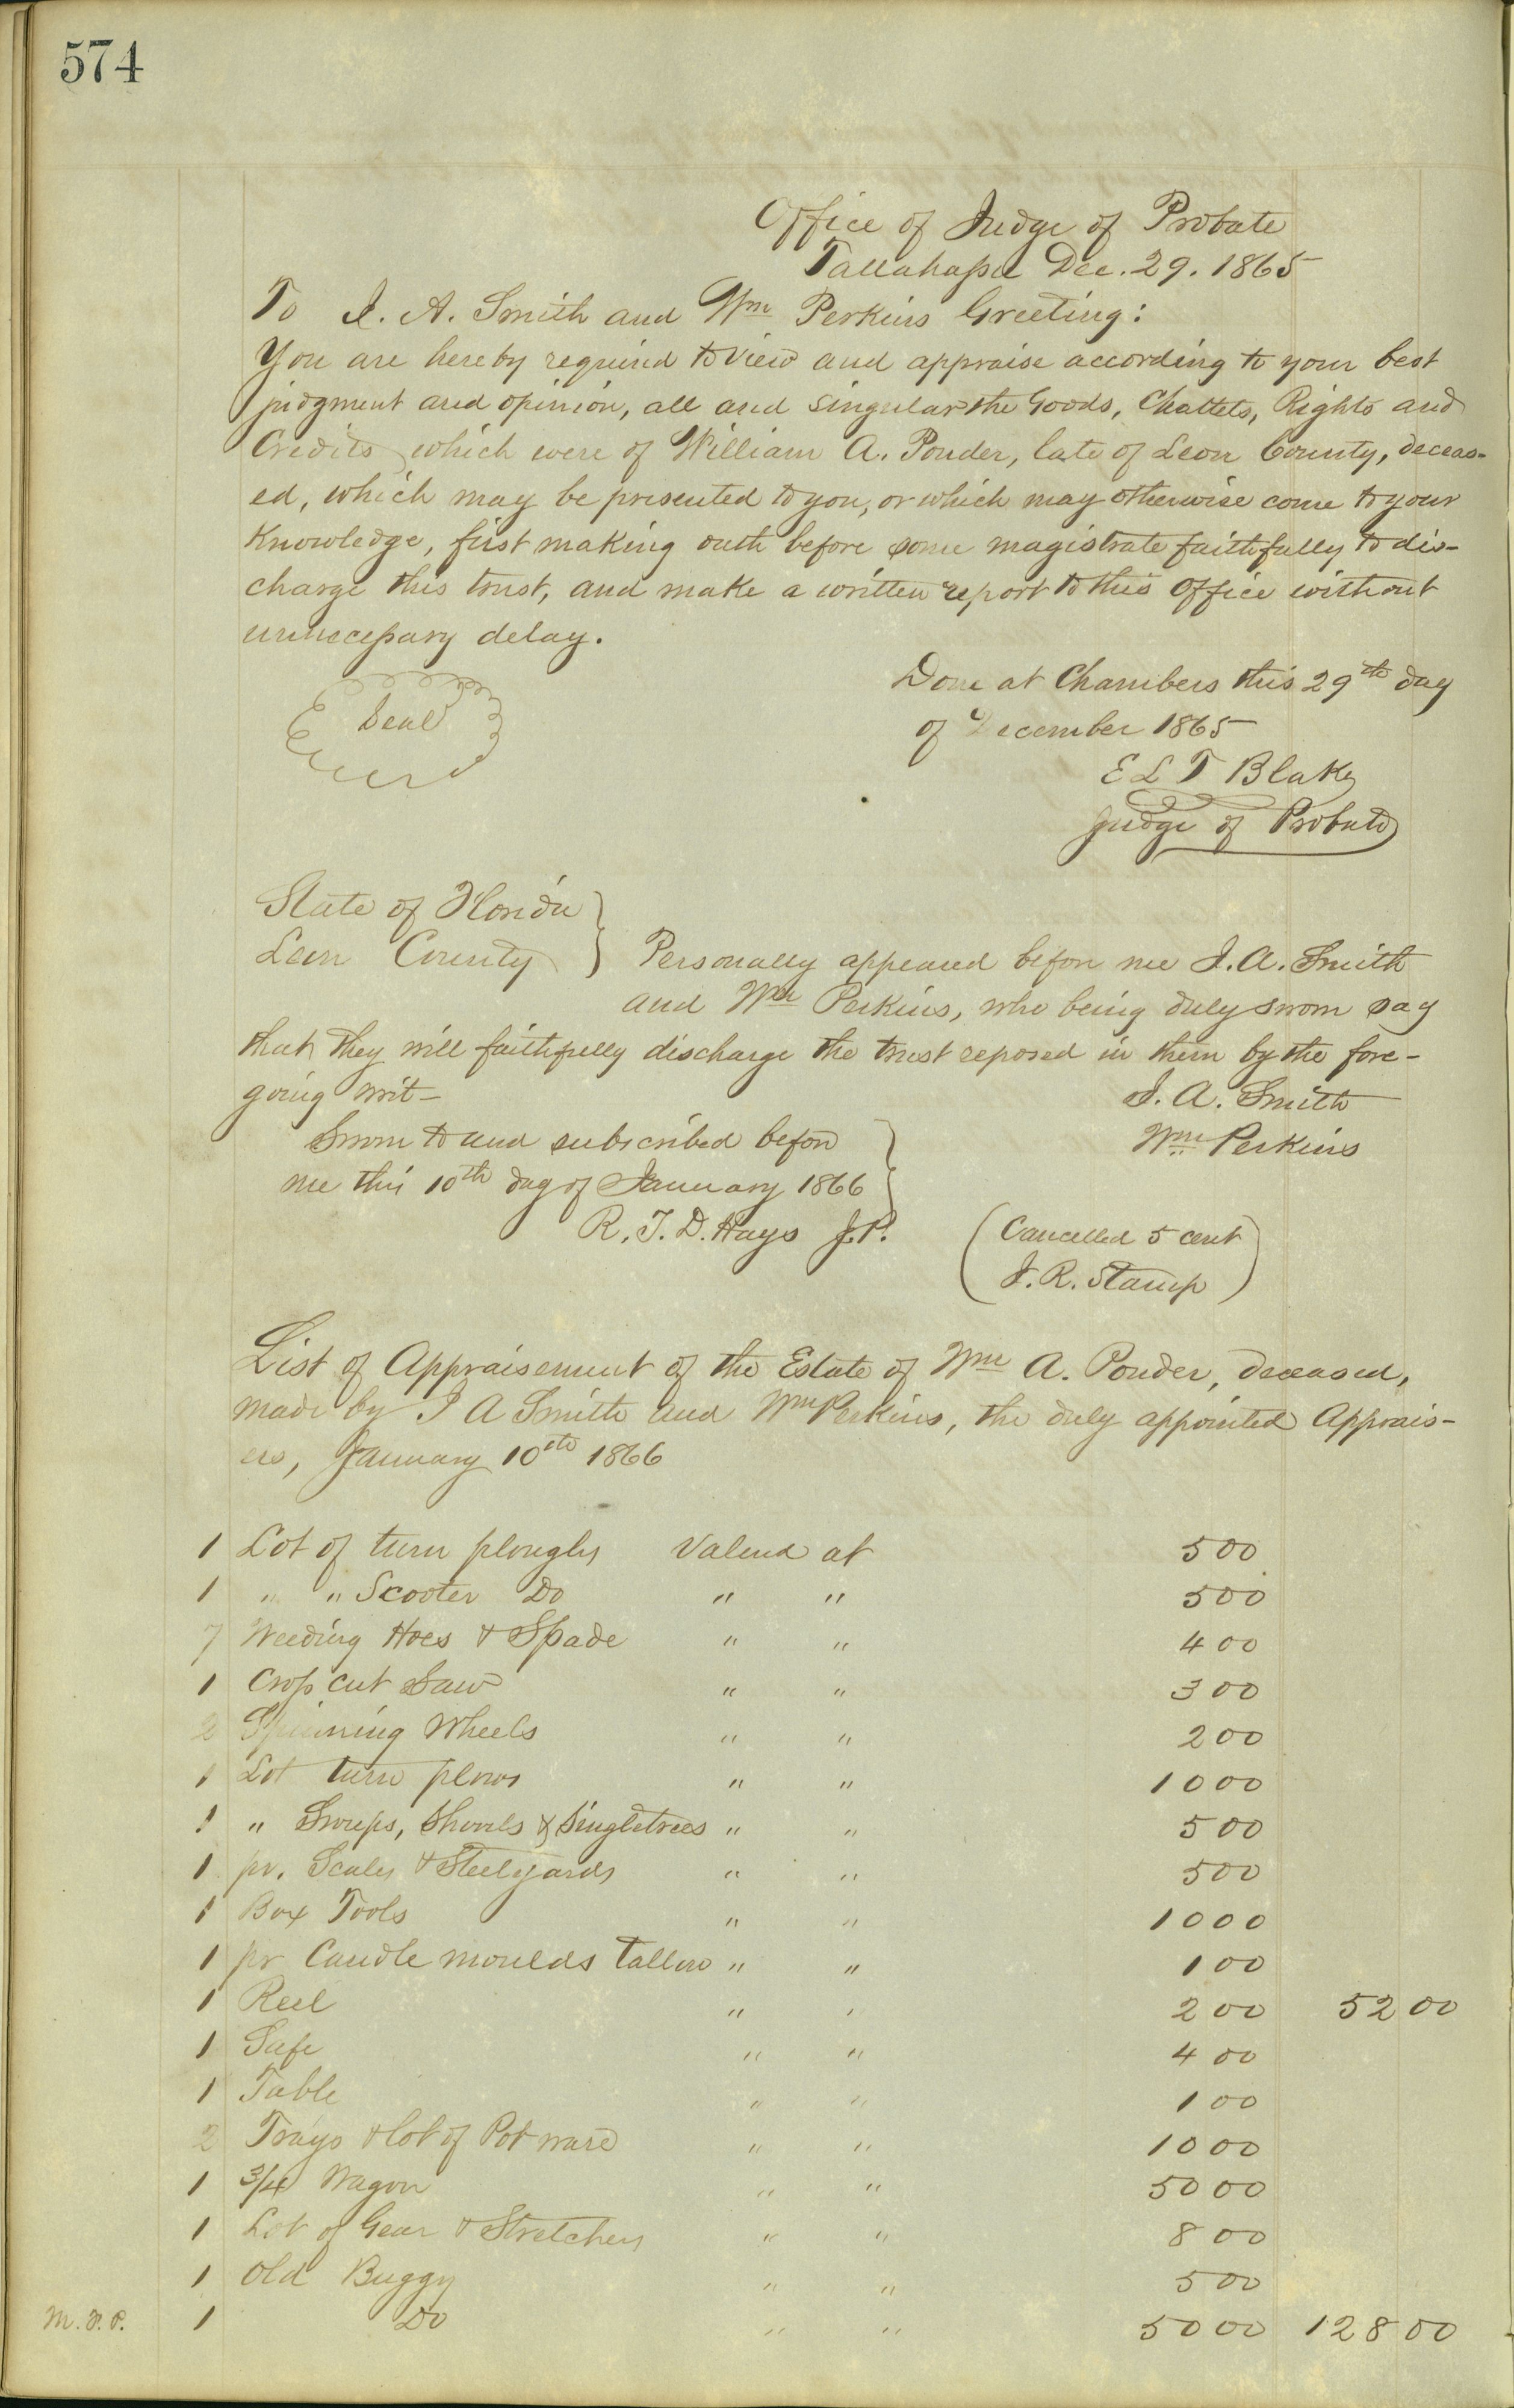 574
Office of Judge of Probate
Tallahassee Dec. 29. 1865
To J. A. Smith and Wm Perkins Greeting:
You are hereby required to view and appraise according to your best
judgment and opinion, all and singular the Goods, Chattels, Rights and
Credits which were of William A. Ponder, late of Leon County, deceas-
ed, which may be presented to you, or which may otherwise come to your
Knowledge, first making oath before some magistrate faithfully to dis-
charge this trust, and make a written report to this Office without
unnecessary delay.
Seal
Done at Chambers this 29th day
of December 1865
E L T Blake
Judge of Probate
State of Florida
Leon County
Personally appeared before me J. A. Smith
and Wm Perkins, who being duly sworn say
that they will faithfully discharge the trust reposed in them by the fore-
going writ-
J. A. Smith
Sworn to and subscribed before
Wm Perkins
me this 10th day of January 1866
R. T. D. Hays J.P.
(Cancelled 5 cent
J. R. Stamp)
List of Appraisement of the Estate of Wm A. Ponder, deceased,
made by J A Smith and Wm Perkins, the duly appointed Apprais-
ers, January 10th 1866
1 Lot of turn ploughs Valued at 500
1 " " Scooter Do " " 500
7 Weeding Hoes & Spade " " 400
1 Crop cut Saw " " 300
2 Spinning Wheels " " 200
1 Lot turn plows " " 1000
1 " Sweeps, Shovels & Singletrees " " 500
1 pr. Scales & Steelyards " " 500
1 Box Tools " " 1000
1 pr Candle moulds tallow " " 100
1 Reel " " 200 5200
1 Safe " " 400
1 Table " " 100
2 Trays & lot of Pot ware " " 1000
1 3/4 Wagon " " 5000
1 Lot of Gear & Stretchers " " 800
1 Old Buggy " " 500
M. F. P. 1 Do " " 5000 12800